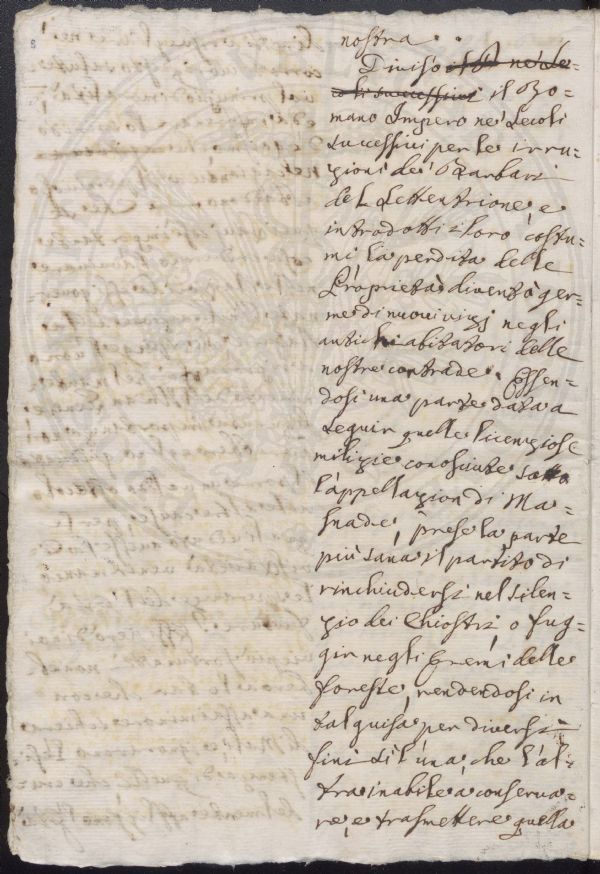 nostra.
Diviso
il Ro-
mano Impero ne' Secoli
successivi per le irru-
zioni dei Barbari
del Settentrione, e
introdotti i loro costu-
mi la perdita delle
Proprietà diventò ger-
me di nuovi vizj negli
antichi abitatori delle
nostre contrade. Essen-
dosi una parte data a
seguir quelle licenziose
milizie conosciute sotto
l'appellazion di Ma-
snade, prese la parte
più sana il partito di
rinchiudersi nel silen-
zio dei Chiostri, o fug-
gir negli Eremi delle
foreste, rendendosi in
tal guisa per diversi
fini sì l'una, che l'al-
tra inabile a conserva-
re, e trasmettere quella